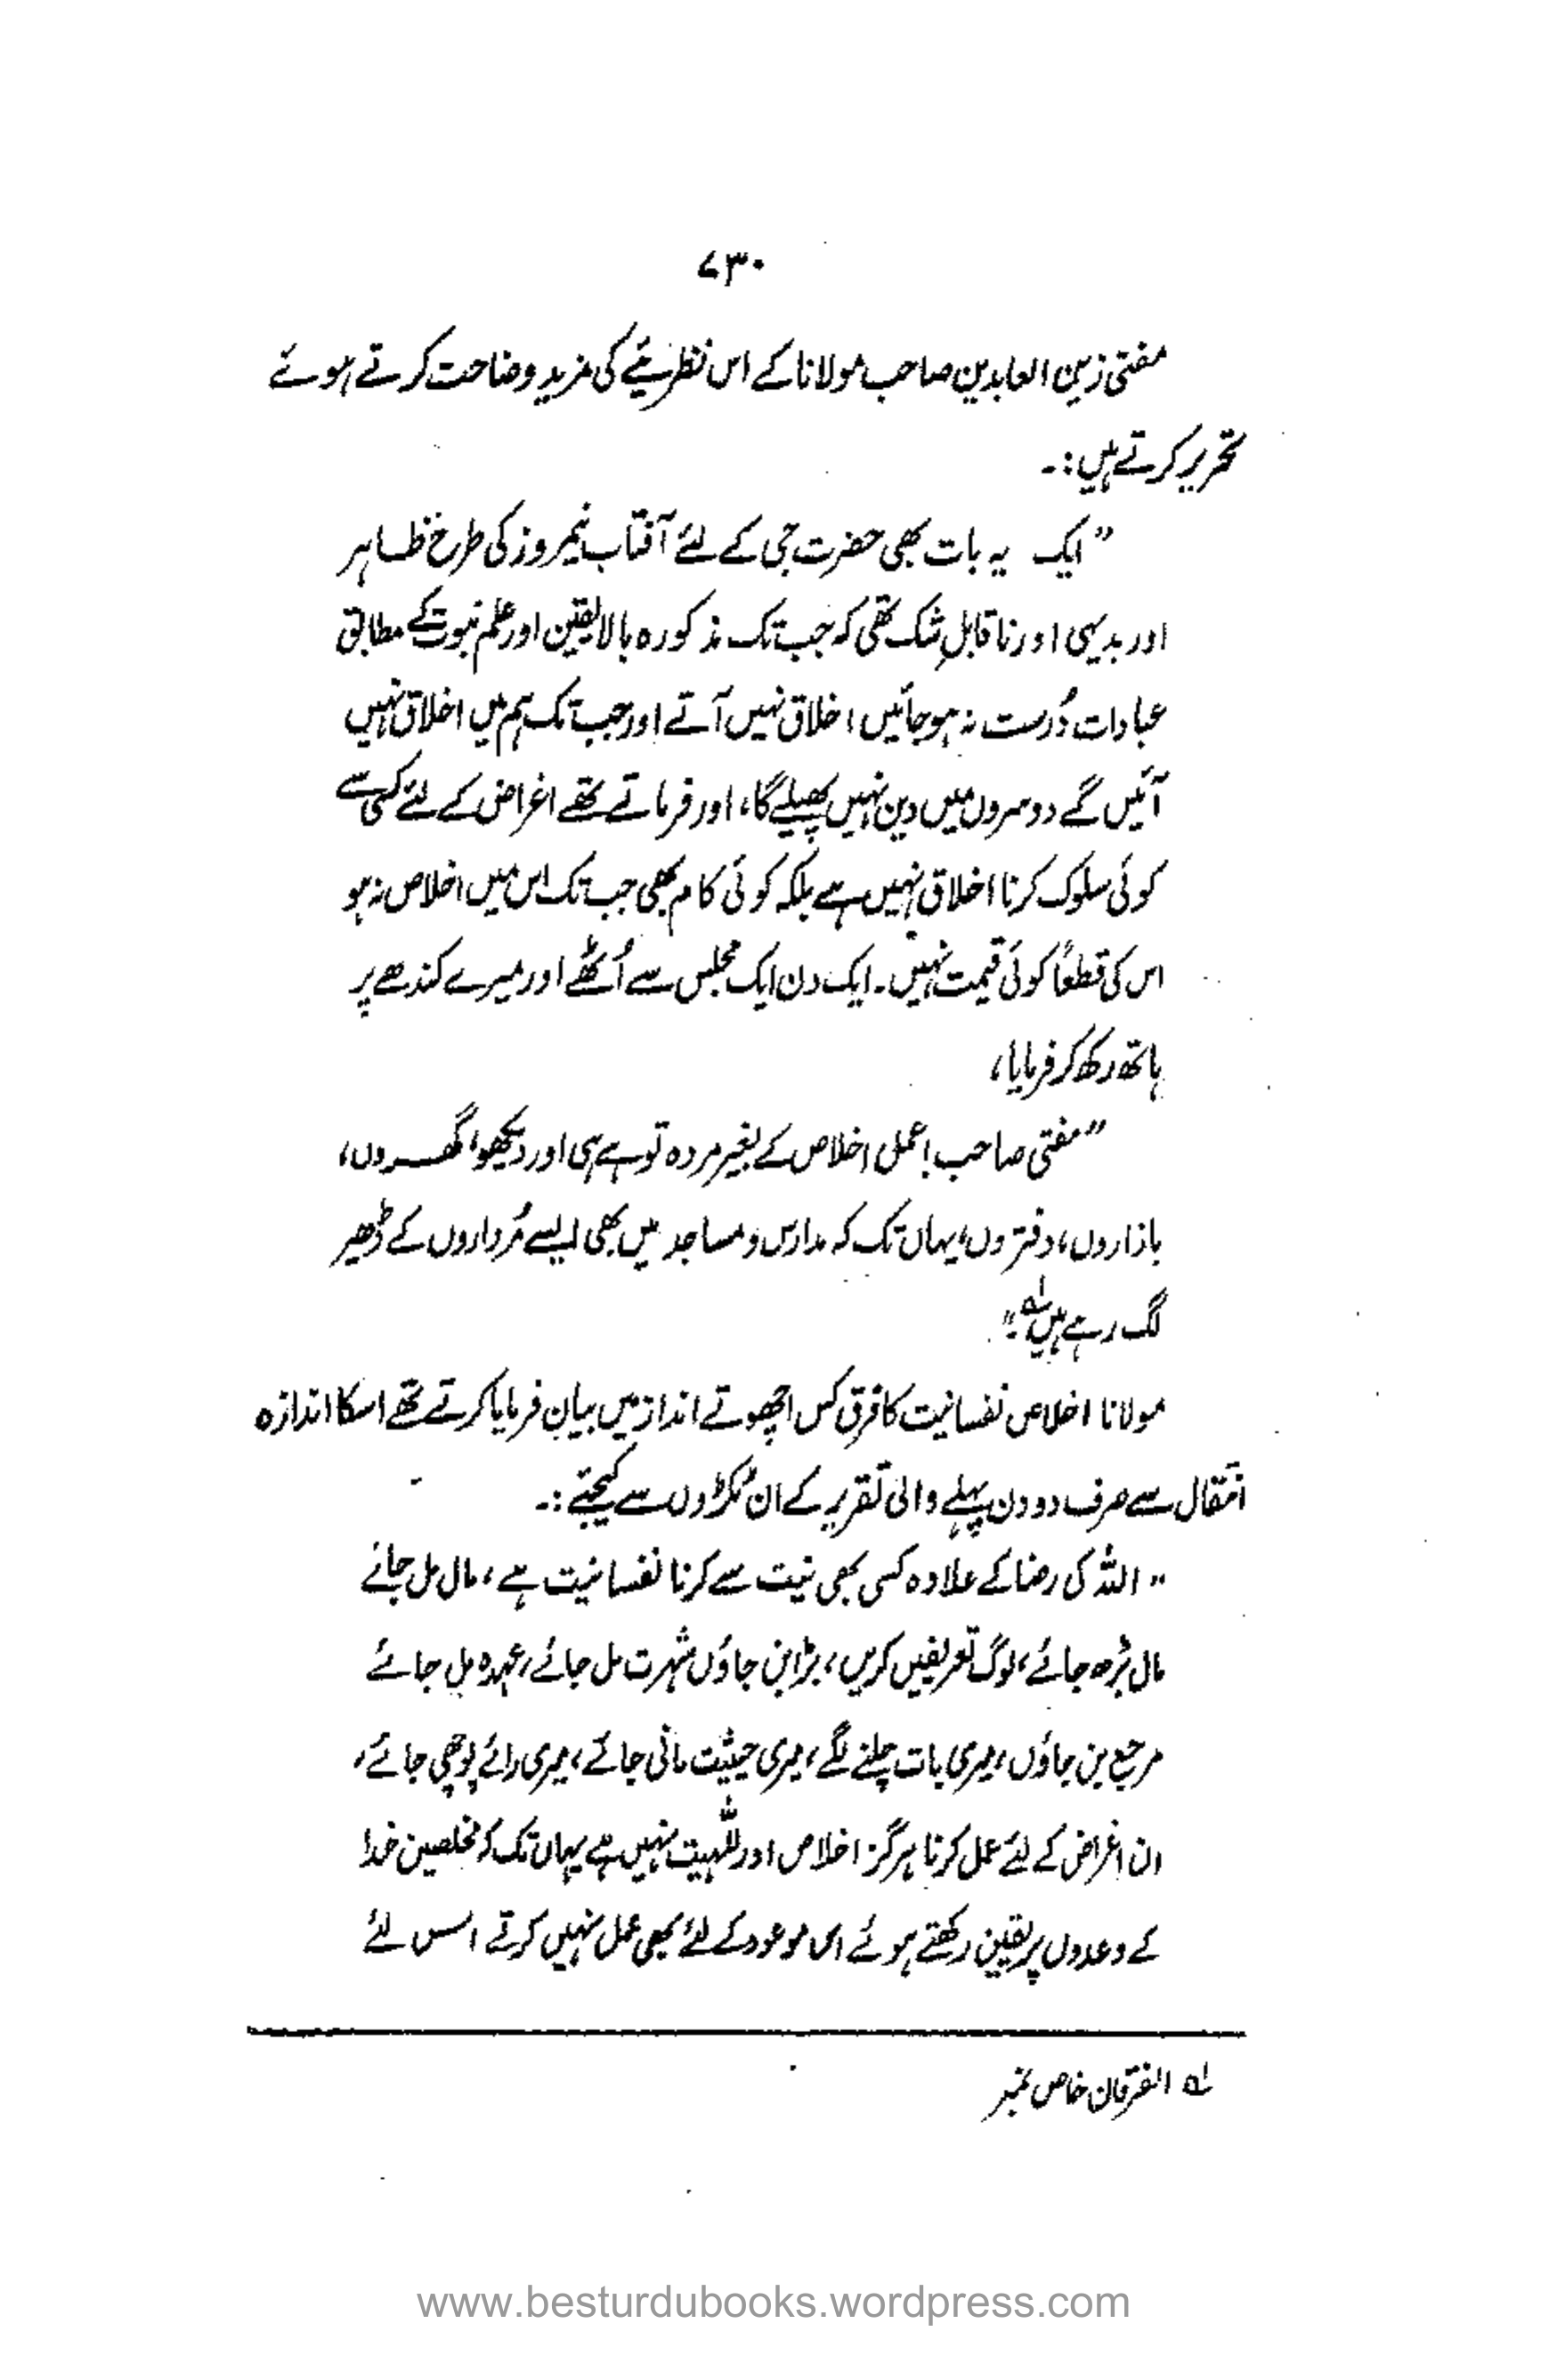 ۷۳۰
مفتی زین العابدین صاحب مولانا کے اس نظریئے کی مزید وضاحت کرتے ہوئے
تحریر کرتے ہیں:۔
"ایک یہ بات بھی حضرت جی کے لئے آفتاب نیمروز کی طرح ظاہر
اور بدیہی اور ناقابلِ شک تھی کہ جب تک مذکورہ بالا یقین اور علم نبوت کے مطابق
عبادات دُرست نہ ہو جائیں اخلاق نہیں آتے اور جب تک ہم میں اخلاق نہیں
آئیں گے دوسروں میں دین نہیں پھیلے گا، اور فرماتے تھے اغراض کے لئے کسی سے
کوئی سلوک کرنا اخلاق نہیں ہے بلکہ کوئی کام بھی جب تک اس میں اخلاص نہ ہو
اس کی قطعاً کوئی قیمت نہیں۔ ایک دن ایک مجلس سے اُٹھے اور میرے کندھے پر
ہاتھ رکھ کر فرمایا،
"مفتی صاحب! عمل اخلاص کے بغیر مردہ تو ہے ہی اور دیکھو! گھروں،
بازاروں، دفتروں، یہاں تک کہ مدارس و مساجد میں بھی ایسے مُرداروں کے ڈھیر
لگ رہے ہیں لہ۔"
مولانا اخلاص نفسانیت کا فرق کس اچھوتے انداز میں بیان فرمایا کرتے تھے اسکا اندازہ
انتقال سے صرف دو دن پہلے والی تقریر کے ان ٹکڑوں سے کیجئے:۔
"اللہ کی رضا کے علاوہ کسی بھی نیت سے کرنا نفسانیت ہے، مال مل جائے
مال بڑھ جائے، لوگ تعریفیں کریں، بڑا بن جاؤں شہرت مل جائے، عہدہ مل جائے
مرجع بن جاؤں، میری بات چلنے لگے، میری حیثیت مانی جائے، میری رائے پوچھی جائے،
ان اغراض کے لئے عمل کرنا ہرگز اخلاص اور للّٰہیت نہیں ہے یہاں تک کہ مخلصین خدا
کے وعدوں پر یقین رکھتے ہوئے اس موعود کے لئے بھی عمل نہیں کرتے اس لئے
لہ الفرقان خاص نمبر
www.besturdubooks.wordpress.com